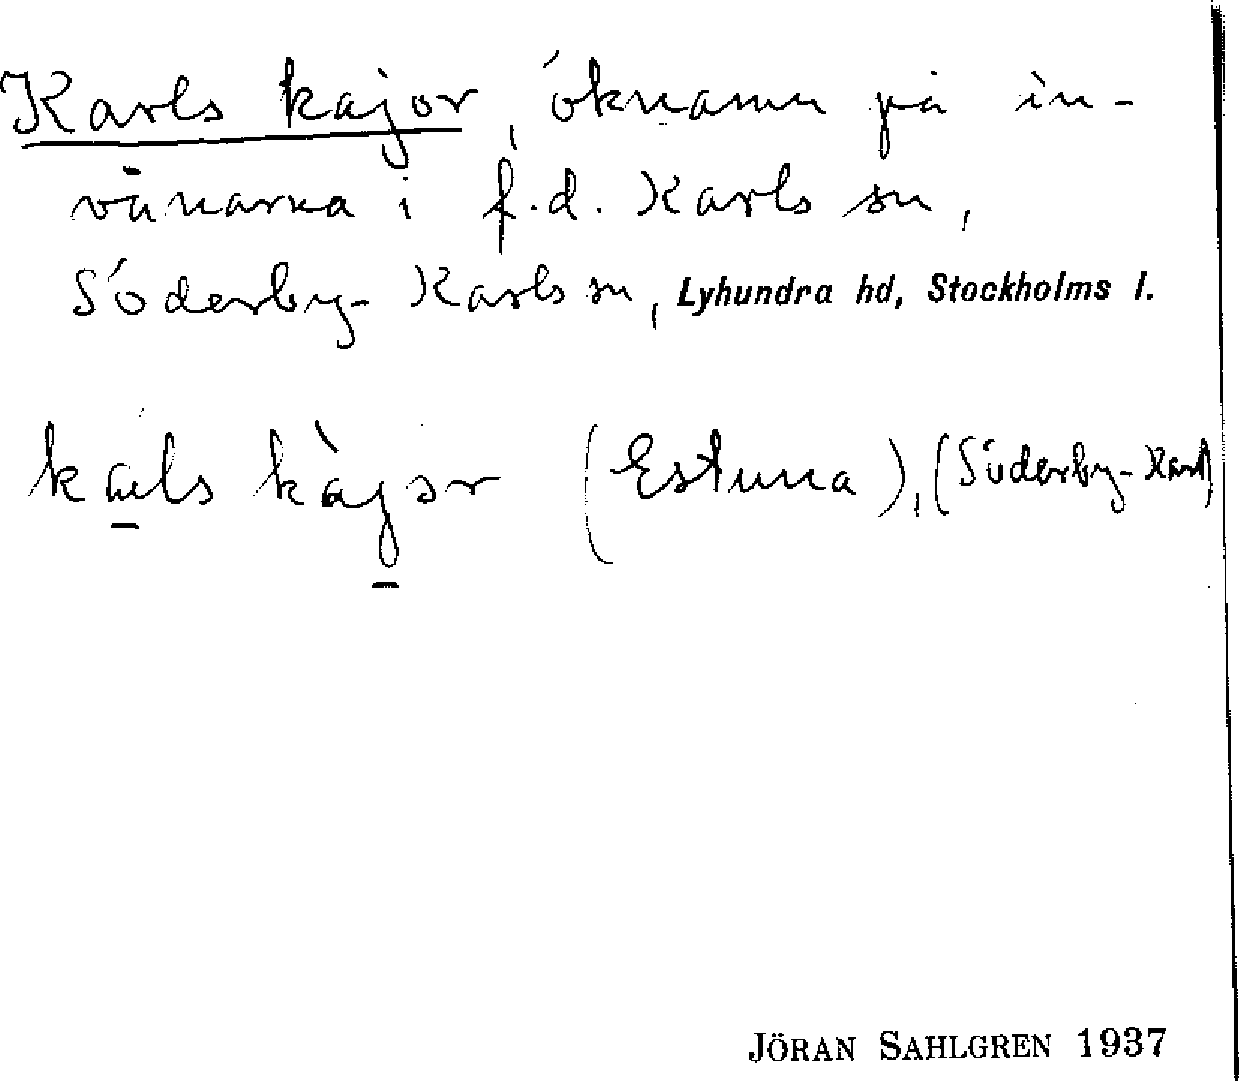 Karls kajor, öknamn på in-
vånarna i f.d. Karls sn,
Söderby-Karls sn, Lyhundra hd, Stockholms l.
kals kàjor (Estuna), (Söderby-Karl)
JÖRAN SAHLGREN 1937